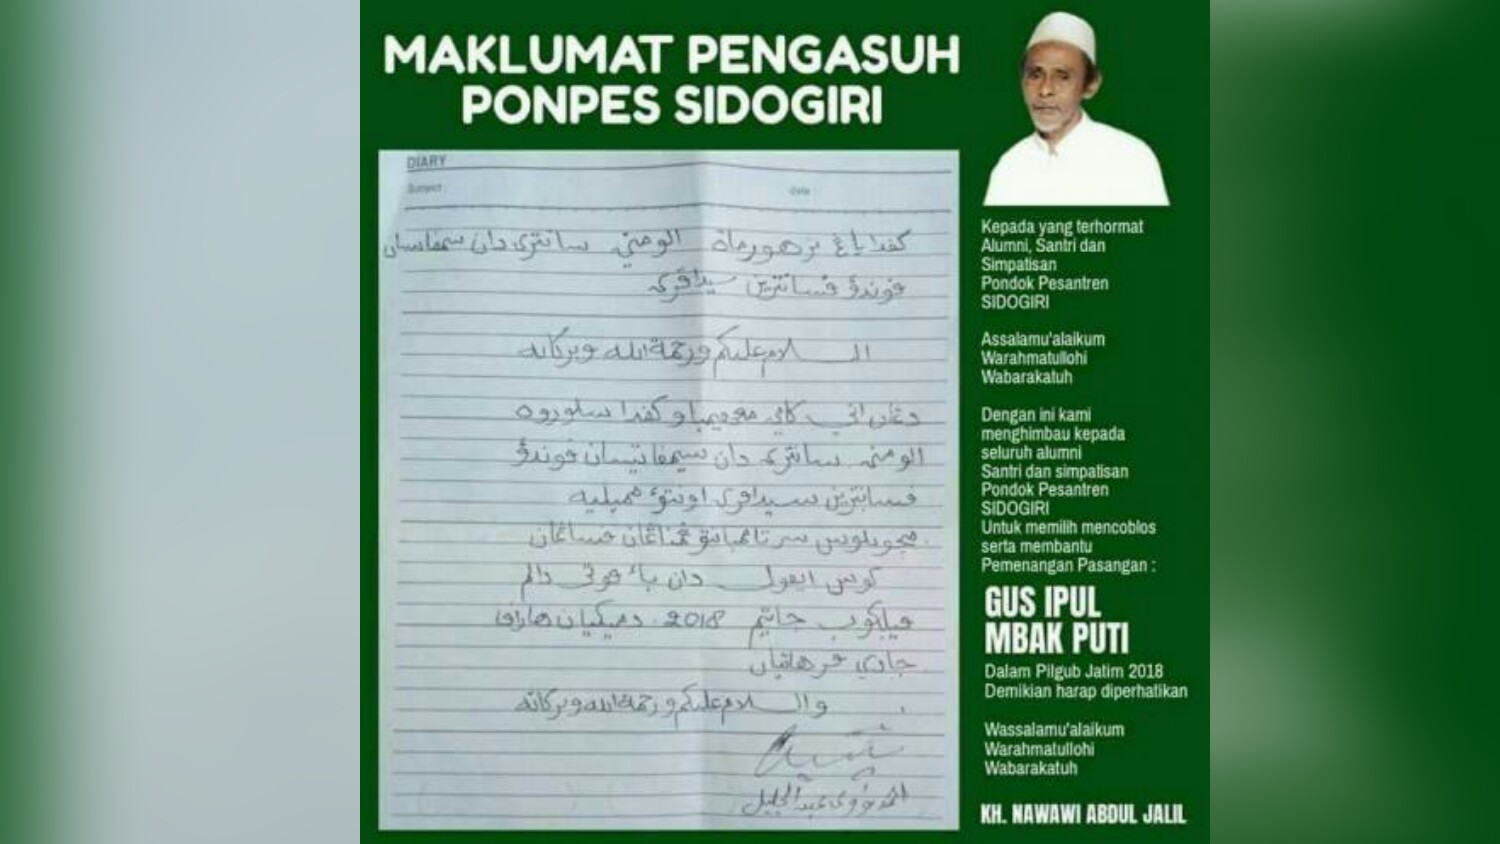 MAKLUMAT PENGASUH
PONPES SIDOGIRI
DIARY
Subject :
date
كفدا ياڠ ترهورمات الومني سانتري دان سمفاتسان
فوندؤ فسانترين سيداڮري
السلام عليكم ورحمة الله وبركاته
دڠان اني كامي مڠهيمباو كفدا سلوروه
الومني سانتري دان سيمفاتيسان فوندؤ
فسانترين سيداڮري اونتوء ميليه
سرتا ممبانتو فمناڠان فساڠان
ڮوس ايفول دان باء فوتي دالم
فيلڮوب جاتيم 2018. دميكيان هارف
والسلام عليكم ورحمة الله وبركاته
احمد نواوي عبد الجليل
Kepada yang terhormat
Alumni, Santri dan
Simpatisan
Pondok Pesantren
SIDOGIRI
Assalamu'alaikum
Warahmatullohi
Wabarakatuh
Dengan ini kami
menghimbau kepada
seluruh alumni
Santri dan simpatisan
Pondok Pesantren
SIDOGIRI
Untuk memilih mencoblos
serta membantu
Pemenangan Pasangan :
GUS IPUL
MBAK PUTI
Dalam Pilgub Jatim 2018
Demikian harap diperhatikan
Wassalamu'alaikum
Warahmatullohi
Wabarakatuh
KH. NAWAWI ABDUL JALIL